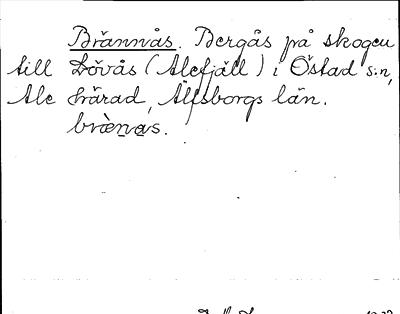 Brännås. Bergås på skogen
till Dövås (Alefjäll) i Östad s:n,
Ale härad, Älfsborgs län.
brènas.